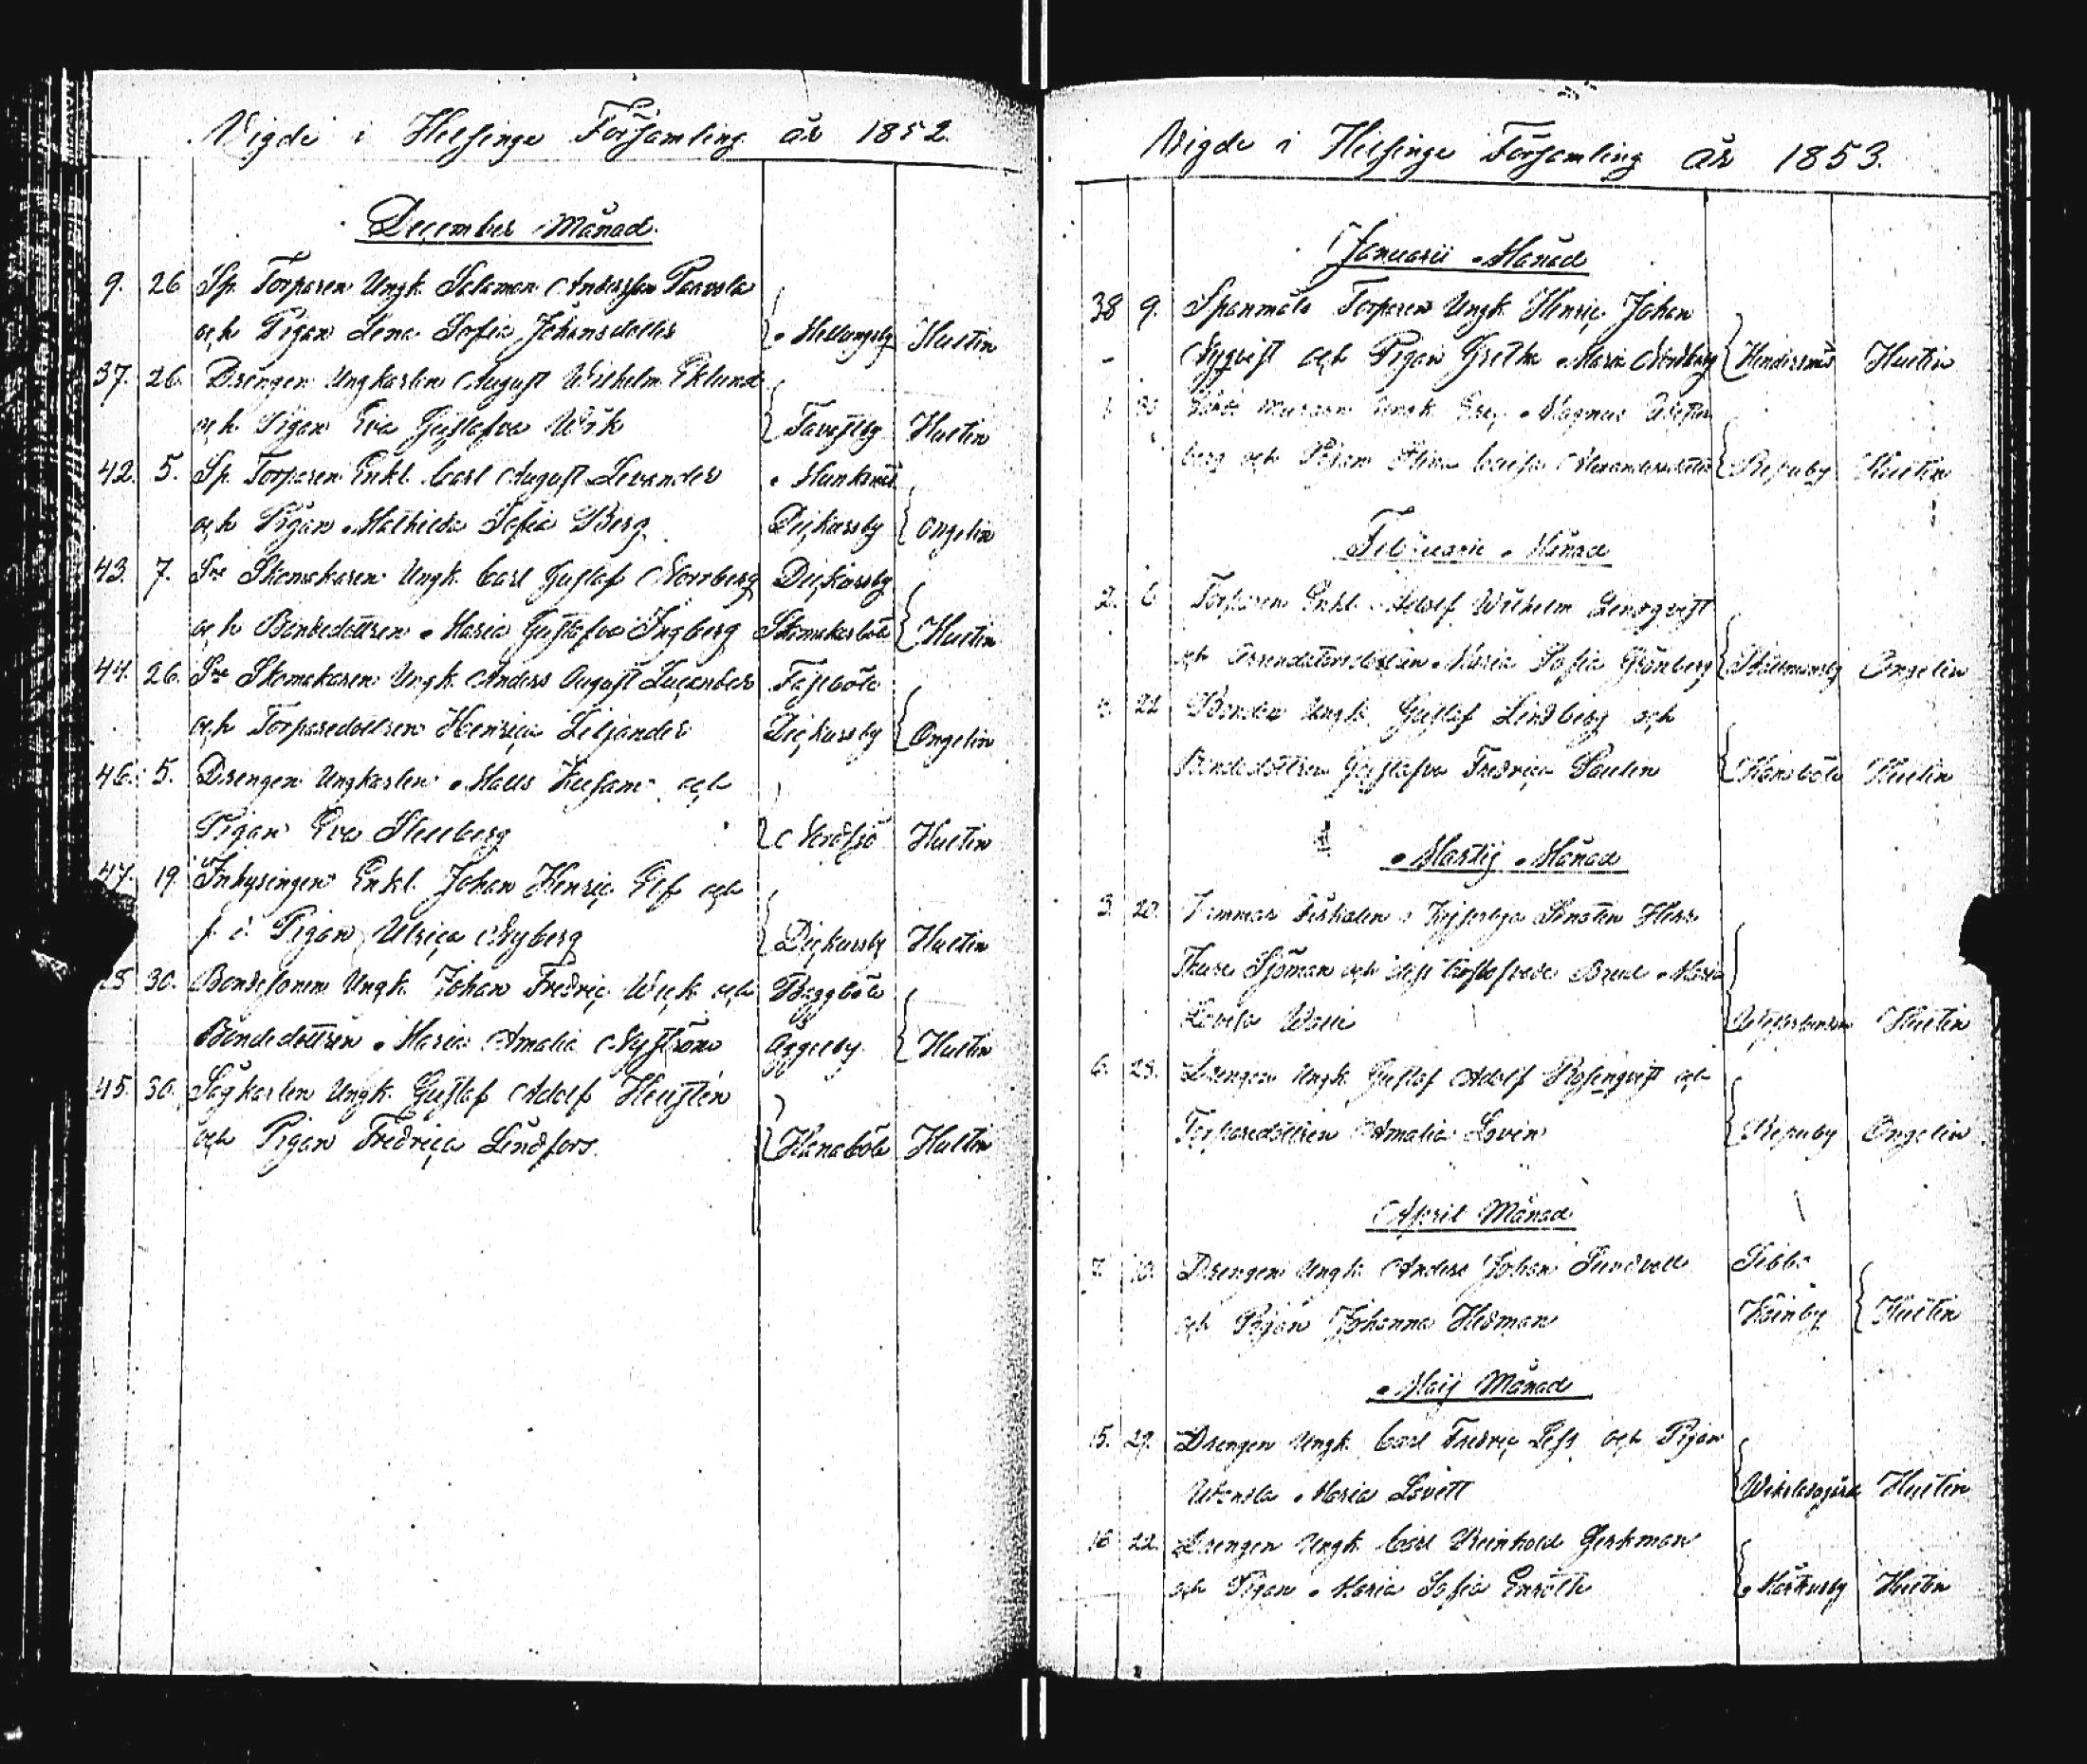 Vigde i Helsinge Församling år 1852.
December Månad.
9. 26 Sp. Torparen Ungk. Salamon Andersson Paavola
och Pigan Lena Sofia Johansdotter Mellungsby Hultin
37. 26. Drengen Ungkarlen August Wilhelm Eklund
och Pigan Eva Gustafva Wik Tavastby Hultin
42. 5. Sp. Torparen Enkl. Carl August Levander Munksnäs
och Pigan Mathilda Sofia Berg Dickursby Ongelin
43. 7. Skomakaren Ungk. Carl Gustaf Norrberg Dickursby
och Bondedottren Maria Gustafva Ingberg Skomakarböle Hultin
44. 26. Skomakaren Ungk. Anders August Lucander Fastböle
och Torparedottren Henrica Liljander Dickursby Ongelin
46. 5. Drengen Ungkarlen Matts och
Pigan Eva Nordsjö Hultin
47. 19. Inhysingen Enkl. Johan Henric Elf och
f. d. Pigan Ulrica Nyberg Dickursby Hultin
30. Bondesonen Ungk. Johan Fredric Weck och Baggböle
Bondedottren Maria Amalia Nyström Åggelby Hultin
45. 30. Sågkarlen Ungk. Gustaf Adolf Hellstén
och Pigan Fredrica Lindfors. Hanaböle Hultin
Vigde i Helsinge Församling år 1853.
Januarii Månad
38 9. Spanmåls Torparen Ungk. Henric Johan
Nyqvist och Pigan Gretha Maria Nordberg Hultin
1. 30 Ungk. Magnus
berg och Pigan Alexandersdotter Repuby Hultin
Februarii Månad
2. 6 Torparen Enkl. Adolf Wilhelm Lindqvist
och Maria Sofia Grönberg Skattmansby Ongelin
22 Bonden Ungk. Gustaf Lindberg och
Bondedottren Gustafva Fredrica Paulin Hanaböle Hultin
Martij Månad
3. 20. i Kejserliga Senaten Herr
Thure Sjöman och Maria
Lovisa Hultin
6. 28. Drengen Ungk. Gustaf Adolf Rosenqvist och
Torparedottren Amalia Lovén Repuby Ongelin
April Månad
7. 10. Drengen Ungk. Anders Johan Sundvall Tibbo
och Pigan Johanna Hedman Käinby Hultin
Maij Månad
15. 29. Drengen Ungk. Carl Fredric och Pigan
Maria Lovett Hultin
16 22. Drengen Ungk. Carl Reinhold Gerkman
och Pigan Maria Sofia Enroth Mårtensby Hultin